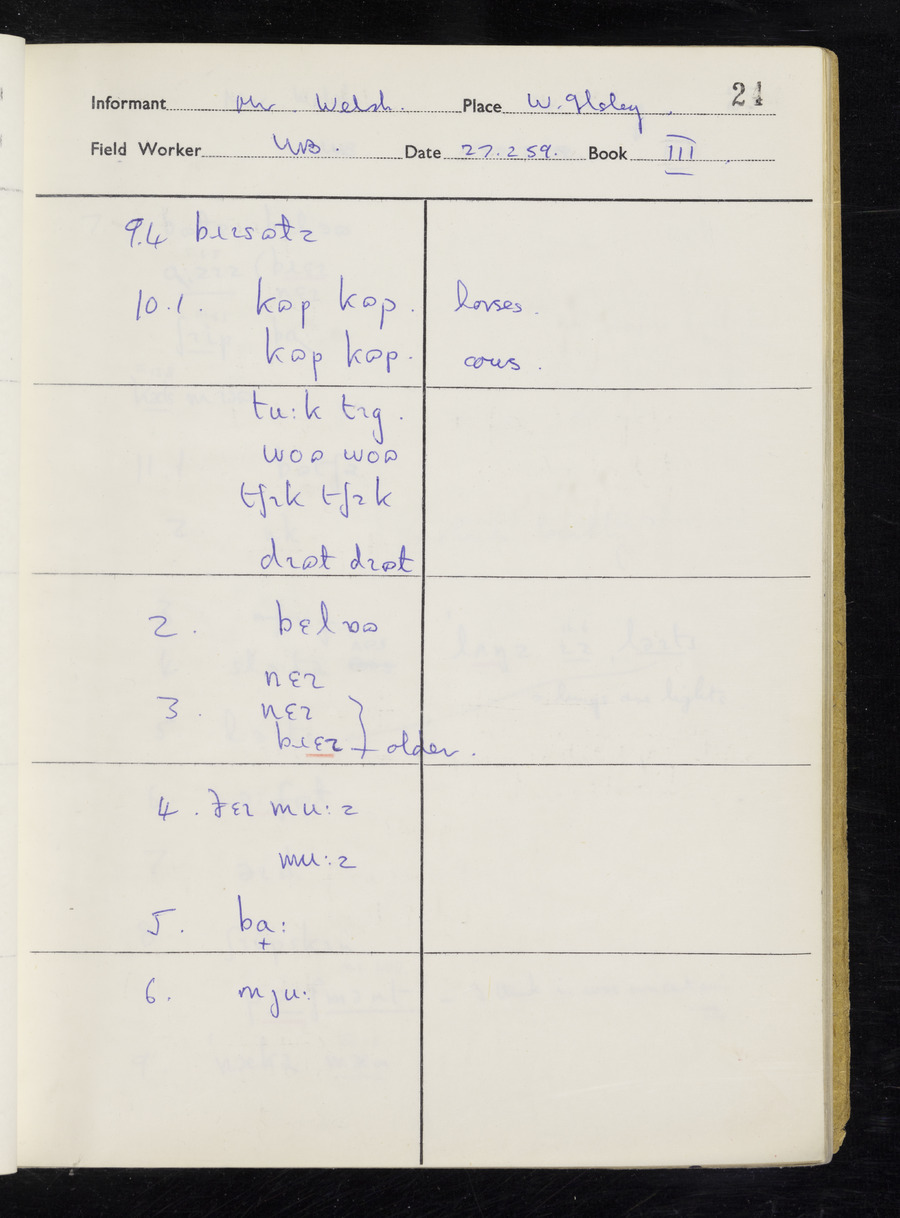 Informant Mr Welsh. Place W. Ilsley 24
Field Worker WB. Date 27.2.59. Book III
9.4 bɪɪsətɪ
10.1. kəp kəp. horses.
kəp kəp. cows.
tu:k tɪg.
woə woə
tʃɪk tʃɪk
drət drət
2. bɛl
nɛɪ
3. nɛɪ
bɪɛɪ } older.
4. ðɛɪ mu:z
mu:z
5. ba:
+
6. mju: